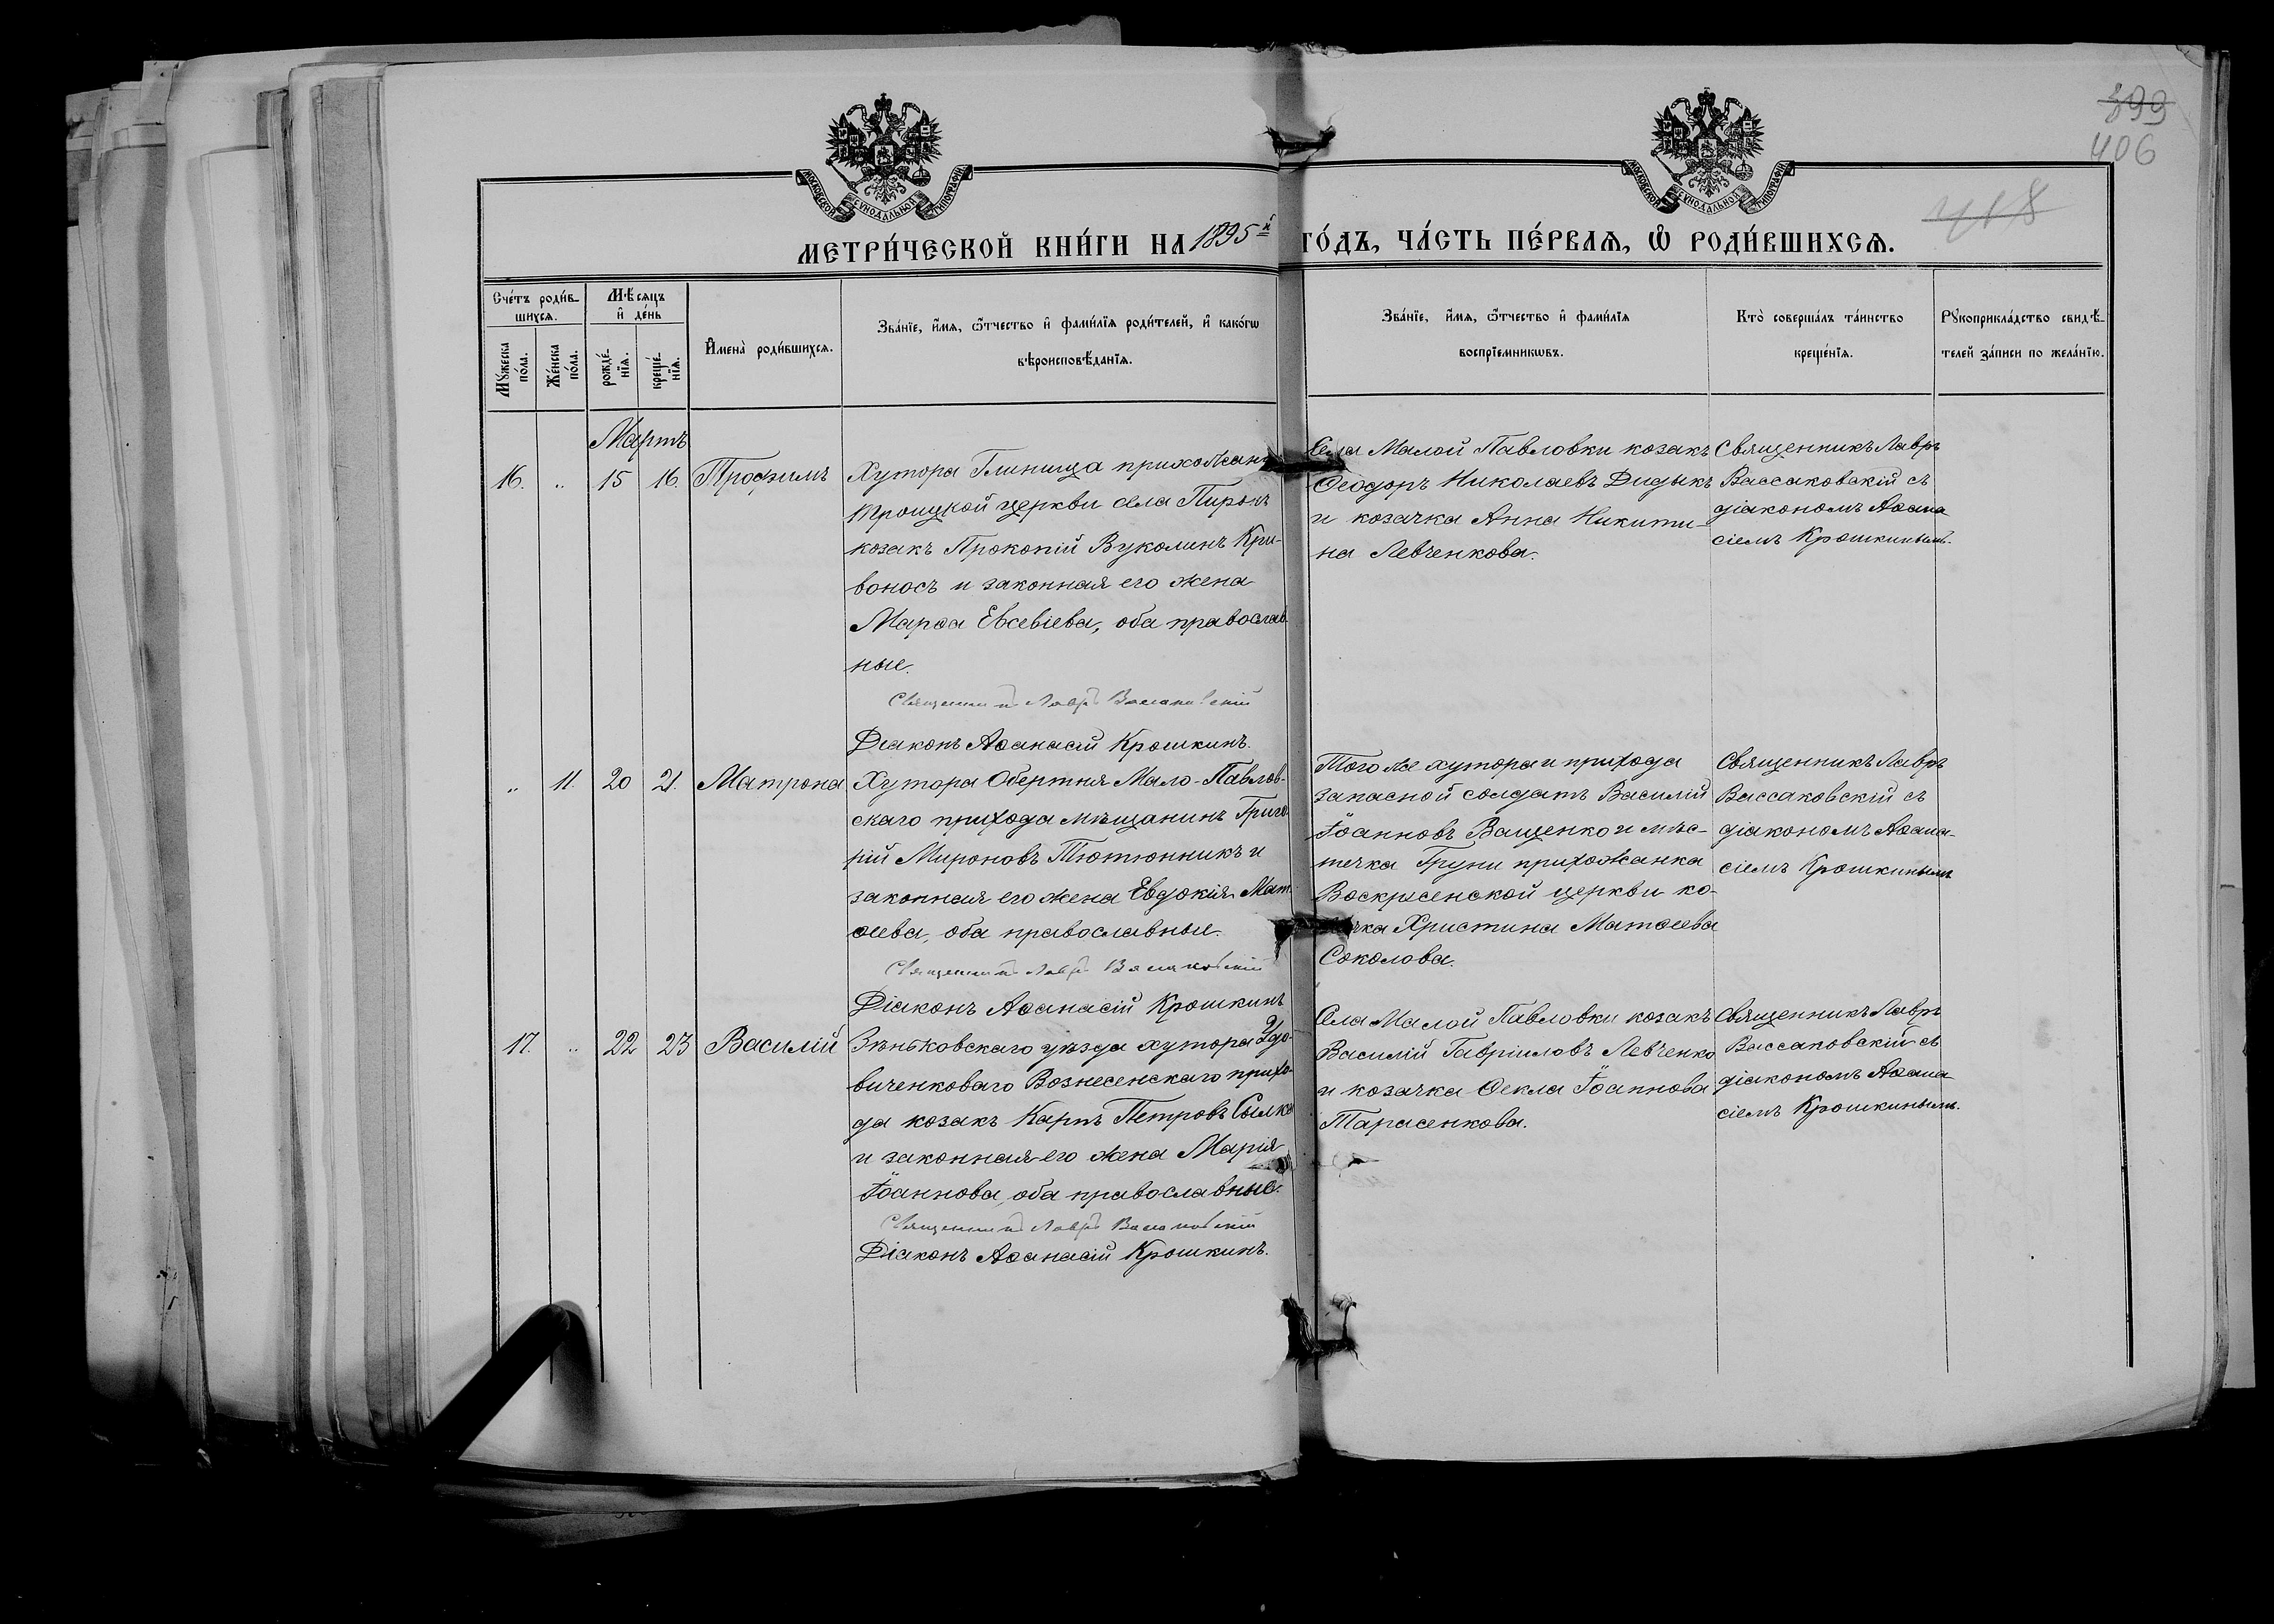 399
406
418
МОСКОВСКОЙ СѴНОДАЛЬНОЙ ТИПОГРАФІИ
МОСКОВСКОЙ СѴНОДАЛЬНОЙ ТИПОГРАФІИ
МЕТРИ́ЧЕСКОЙ КНИ́ГИ НА 1895й ГО́ДЪ, ЧА́СТЬ ПЕ́РВАѦ, Ѽ РОДИ́ВШИХСѦ.
Сче́тъ роди́в-
шихсѧ.
Мѣ́сѧцъ
и҆ де́нь
Мꙋ́жеска
по́ла.
Же́нска
по́ла.
рожде́-
нїѧ.
креще́-
нїѧ.
И҆мена̀ роди́вшихсѧ.
Зва́нїе, и҆́мѧ, ѻ҆́тчество и҆ фами́лїѧ роди́телей, и҆ како́гѡ
вѣроисповѣ́данїѧ.
Зва́нїе, и҆́мѧ, ѻ҆́тчество и҆ фами́лїѧ
воспрїе́мникѡвъ.
Кто̀ соверша́лъ та́инство
креще́нїѧ.
Рꙋкоприкла́дство свидѣ́-
телей за́писи по жела́нїю.
Мартъ
16. „ 15 16. Трофимъ
Хутора Глинища прихожан
Троицкой церкви села Пирокъ
козакъ Прокопій Вуколинъ Кри-
воносъ и законная его жена
Марѳа Евсевіева, оба православ
ные.
Священникъ Лавръ Вассаковскій
Діаконъ Аѳанасій Крошкинъ.
Села Малой Павловки козакъ
Ѳеодоръ Николаевъ Дидыкъ
и козачка Анна Никити-
на Левченкова.
Священникъ Лавръ
Вассаковскій съ
діакономъ Аѳана
сіемъ Крошкинымъ.
„ 11. 20 21. Матрона
Хутора Обертня Мало-Павлов-
скаго прихода мѣщанинъ Григо
рій Мироновъ Тютюнникъ и
законная его жена Евдокія Мат
ѳеева, оба православные.
Священникъ Лавръ Вассаковскій
Діаконъ Аѳанасій Крошкинъ
Того же хутора и прихода
запасной солдатъ Василій
Іоанновъ Ващенко и мѣс-
течка Груни прихожанка
Воскресенской церкви ко-
зачка Христина Матѳеева
Соколова.
Священникъ Лавръ
Вассаковскій съ
діакономъ Аѳана-
сіемъ Крошкинымъ
17. „ 22 23 Василій
Зѣньковскаго уѣзда хутора Удо-
виченковаго Вознесенскаго прихо-
да козакъ Карпъ Петровъ Сылко
и законная его жена Марія
Іоаннова, оба православные.
Священникъ Лавръ Вассаковскій
Діаконъ Аѳанасій Крошкинъ.
Села Малой Павловки козакъ
Василій Гавріиловъ Левченко
и козачка Ѳекла Іоаннова
Тарасенкова.
Священникъ Лавръ
Вассаковскій съ
діакономъ Аѳана-
сіемъ Крошкинымъ.